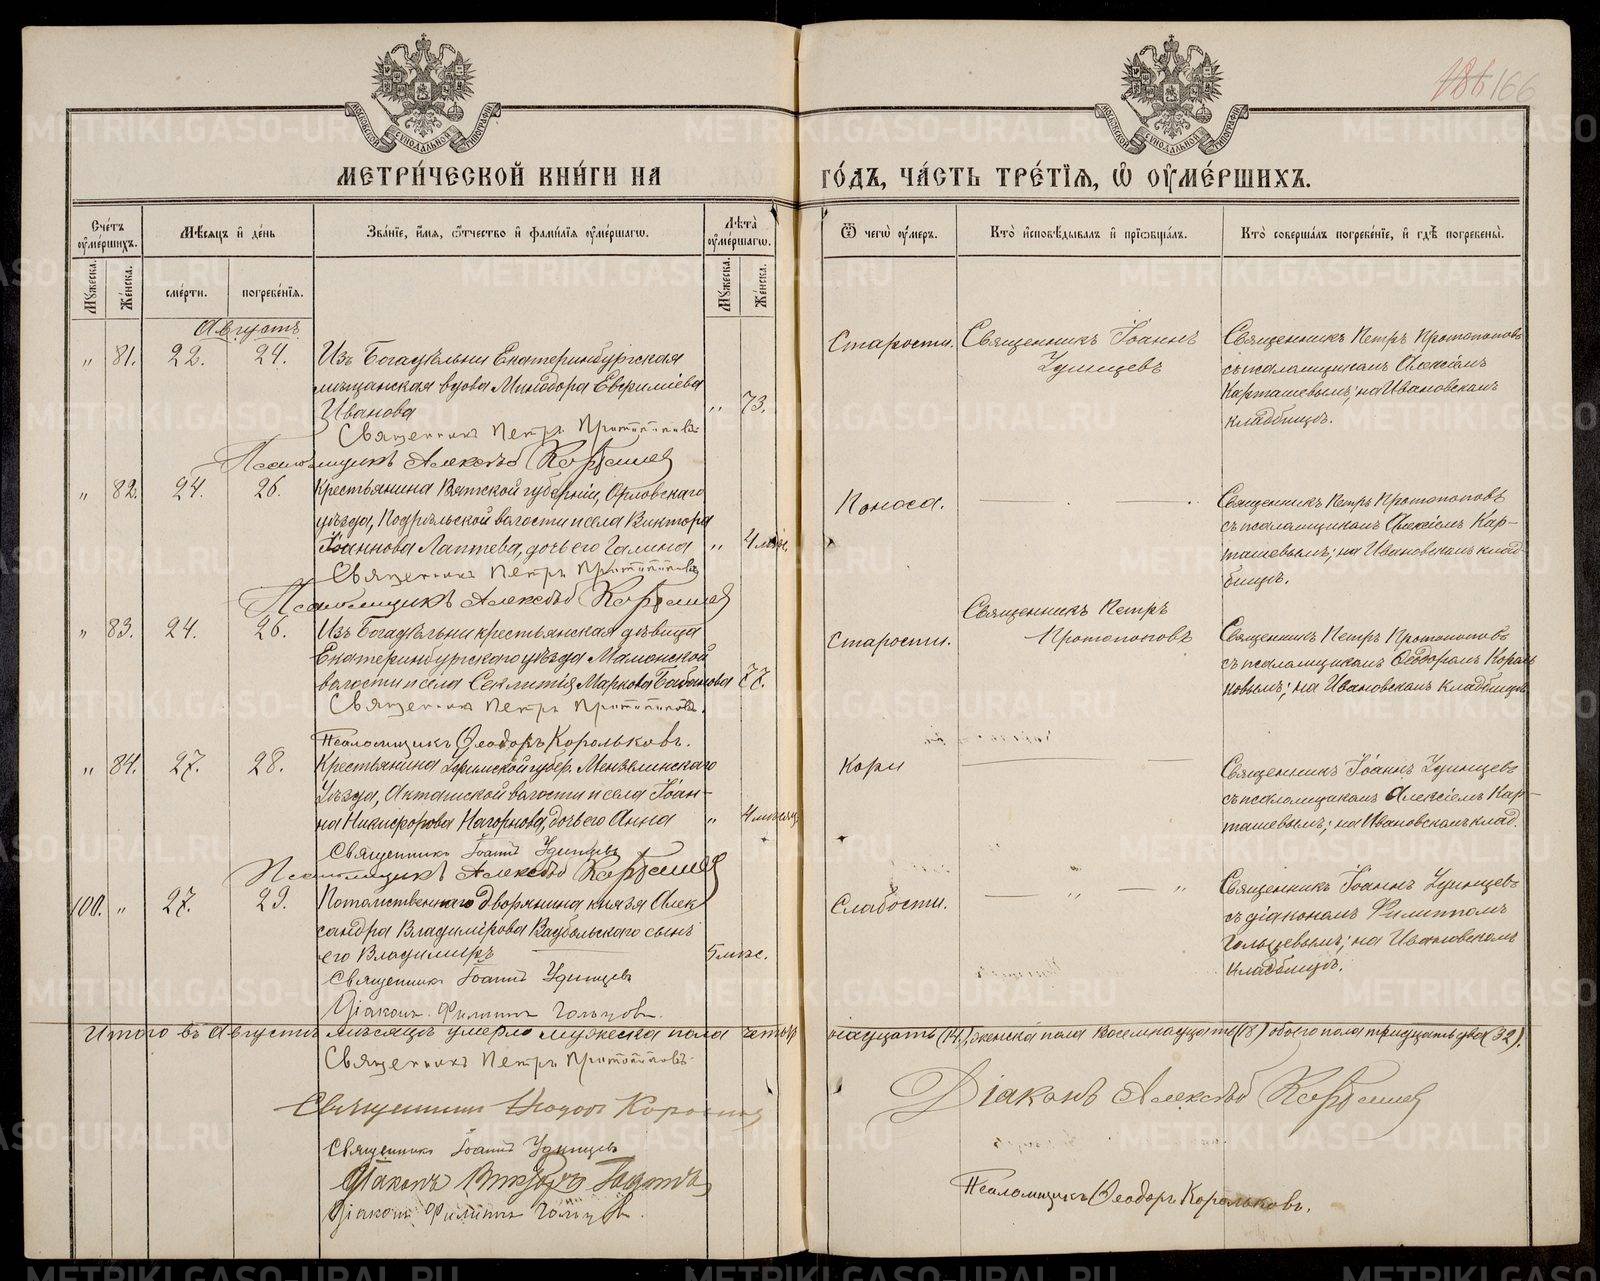 186 166
МОСКОВСКОЙ СѴНОДАЛЬНОЙ ТИПОГРАФІИ
МОСКОВСКОЙ СѴНОДАЛЬНОЙ ТИПОГРАФІИ
МЕТРИ́ЧЕСКОЙ КНИ́ГИ НА ГО́ДЪ, ЧА́СТЬ ТРЕ́ТІѦ, Ѡ҆ ОУ҆МЕ́РШИХЪ.
Сче́тъ оу҆ме́ршихъ.
Мѣ́сѧцъ и҆ де́нь
Зва́нїе, и҆́мѧ, ѻ҆́тчество и҆ фами́лїѧ оу҆ме́ршагѡ.
Лѣ́та оу҆ме́ршагѡ.
Ѿ чегѡ̀ оу҆́меръ.
Кто̀ и҆сповѣ́дывалъ и҆ прїѡбща́лъ.
Кто̀ соверша́лъ погребе́нїе, и҆ гдѣ̀ погребены̀.
Мꙋ́жеска.
Же́нска.
сме́рти.
погребе́нїѧ.
Мꙋ́жеска.
Же́нска.
Августъ
„ 81. 22. 24. Изъ Богадѣльни Екатеринбургская
мѣщанская вдова Минодора Евфиміева
Иванова „ 73.
Священникъ Петръ Протопоповъ
Псаломщикъ Алексѣй Карташев
Старости. Священникъ Іоаннъ
Удинцевъ
Священникъ Петръ Протопоповъ
съ псаломщикомъ Алексіемъ
Карташевымъ; на Ивановскомъ
кладбищѣ.
„ 82. 24. 26. Крестьянина Вятской губерніи, Орловскаго
уѣзда, Подрѣльской волости и села Виктора
Іоаннова Лаптева, дочь его Галина „ 4 мѣс.
Священникъ Петръ Протопоповъ
Псаломщикъ Алексѣй Карташев
Поноса. — . — .
Священникъ Петръ Протопоповъ
съ псаломщикомъ Алексіемъ Кар-
ташевымъ; на Ивановскомъ клад-
бищѣ.
„ 83. 24. 26. Изъ Богадѣльни крестьянская дѣвица
Екатеринбургскаго уѣзда Маминской
волости и села Маркова 77.
Священникъ Петръ Протопоповъ.
Псаломщикъ Ѳеодоръ Корольковъ.
Старости. Священникъ Петръ
Протопоповъ
Священникъ Петръ Протопоповъ
съ псаломщикомъ Ѳеодоромъ Король
ковымъ; на Ивановскомъ кладбищѣ
„ 84. 27. 28. Крестьянина Уфимской губер. Мензелинскаго
Уѣзда, Акташской волости и села Іоан-
на Никифорова Нагорнова, дочь его Анна „ 4 мѣсяц.
Священникъ Іоаннъ Удинцевъ
Псаломщикъ Алексѣй Карташев
Кори — —
Священникъ Іоаннъ Удинцевъ
съ псаломщикомъ Алексіемъ Кар-
ташевымъ; на Ивановскомъ клад.
100. „ 27. 29. Потомственнаго дворянина князя Алек
сандра Владимірова Вадбольскаго сынъ
его Владимиръ — 5 мѣс.
Священникъ Іоаннъ Удинцевъ
Діаконъ Филиппъ Гольцовъ.
Слабости. — „ — „
Священникъ Іоаннъ Удинцевъ
съ діакономъ Филиппомъ
Гольцевымъ; на Ивановскомъ
кладбищѣ.
Итого въ Августѣ мѣсяцѣ умерло мужеска пола четыр надцать (14), женска пола восемнадцать (18) обоего пола тридцать два (32).
Священникъ Петръ Протопоповъ.
Священникъ
Священникъ Іоаннъ Удинцевъ
Діаконъ
Діаконъ Филиппъ Гольцовъ.
Діаконъ Алексѣй Карташев
Псаломщикъ Ѳеодоръ Корольковъ.
METRIKI.GASO-URAL.RU